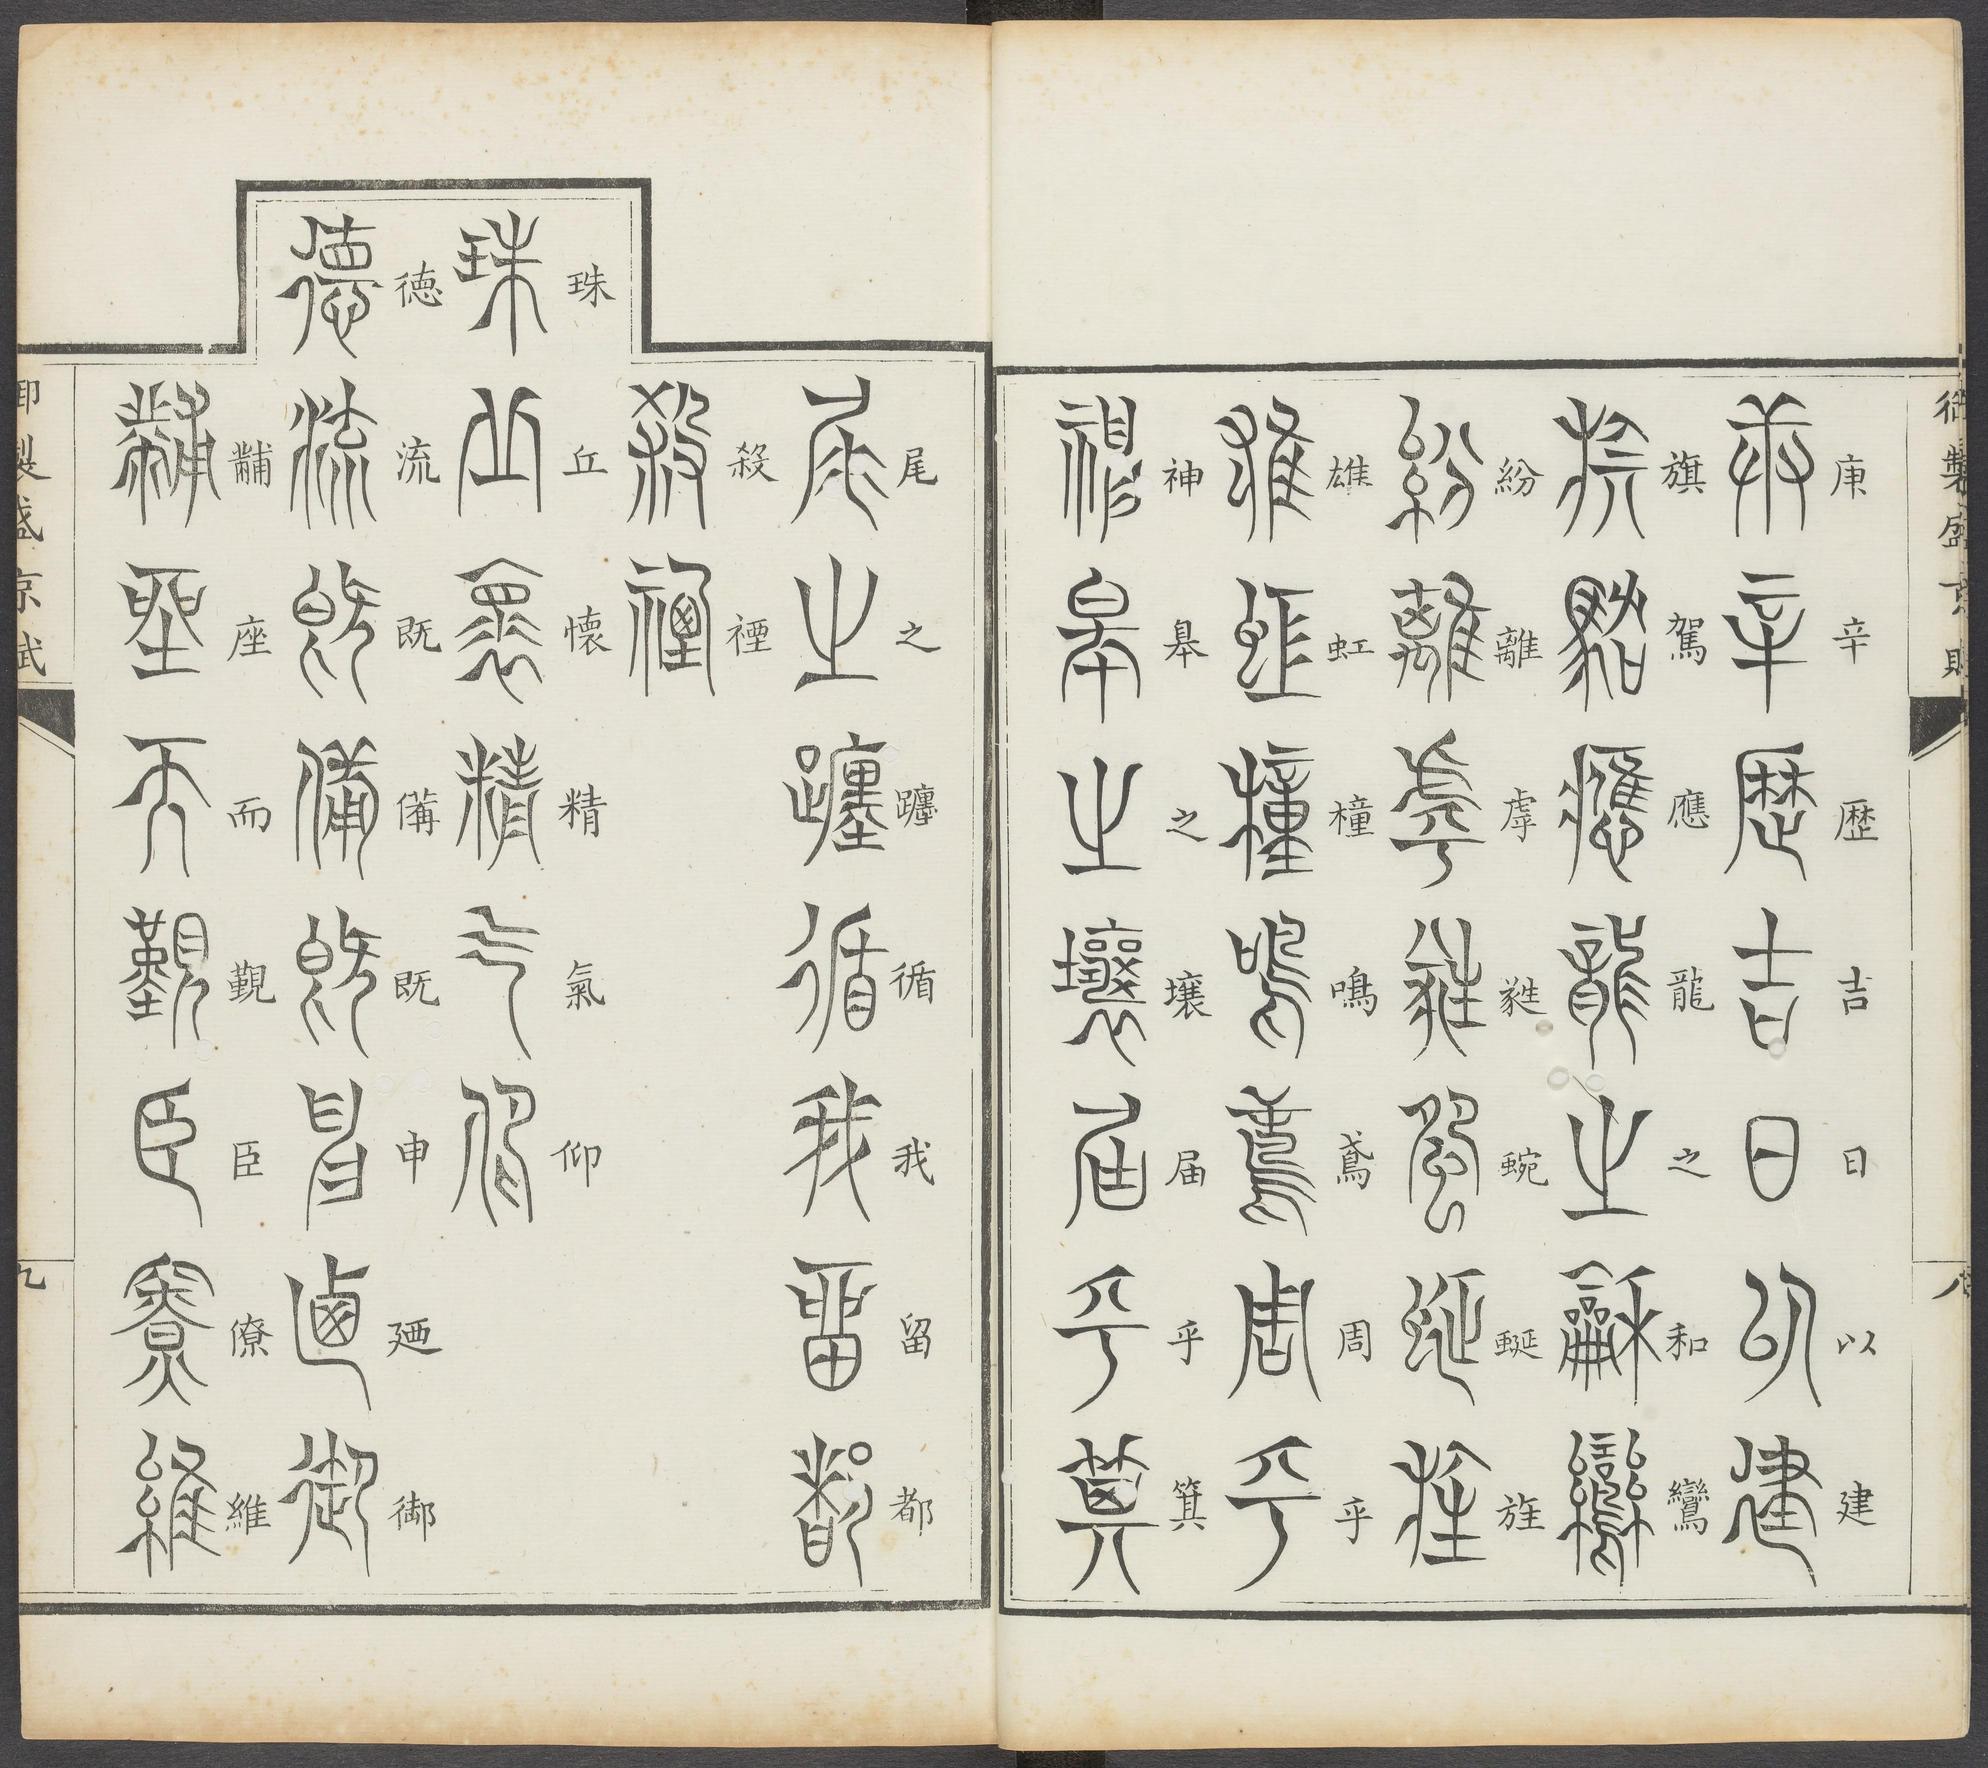 御製盛京賦
八
庚辛歴吉日以建
旗駕應龍之和鸞
紛離虖蕤蜿蜒旌
雄虹橦鳴鳶周乎
神臯之壤届乎箕
尾之躔循我留都
殺禋
珠丘懐精氣仰
徳流既備既申廼御
黼座而覲臣僚維
御製盛京賦
九